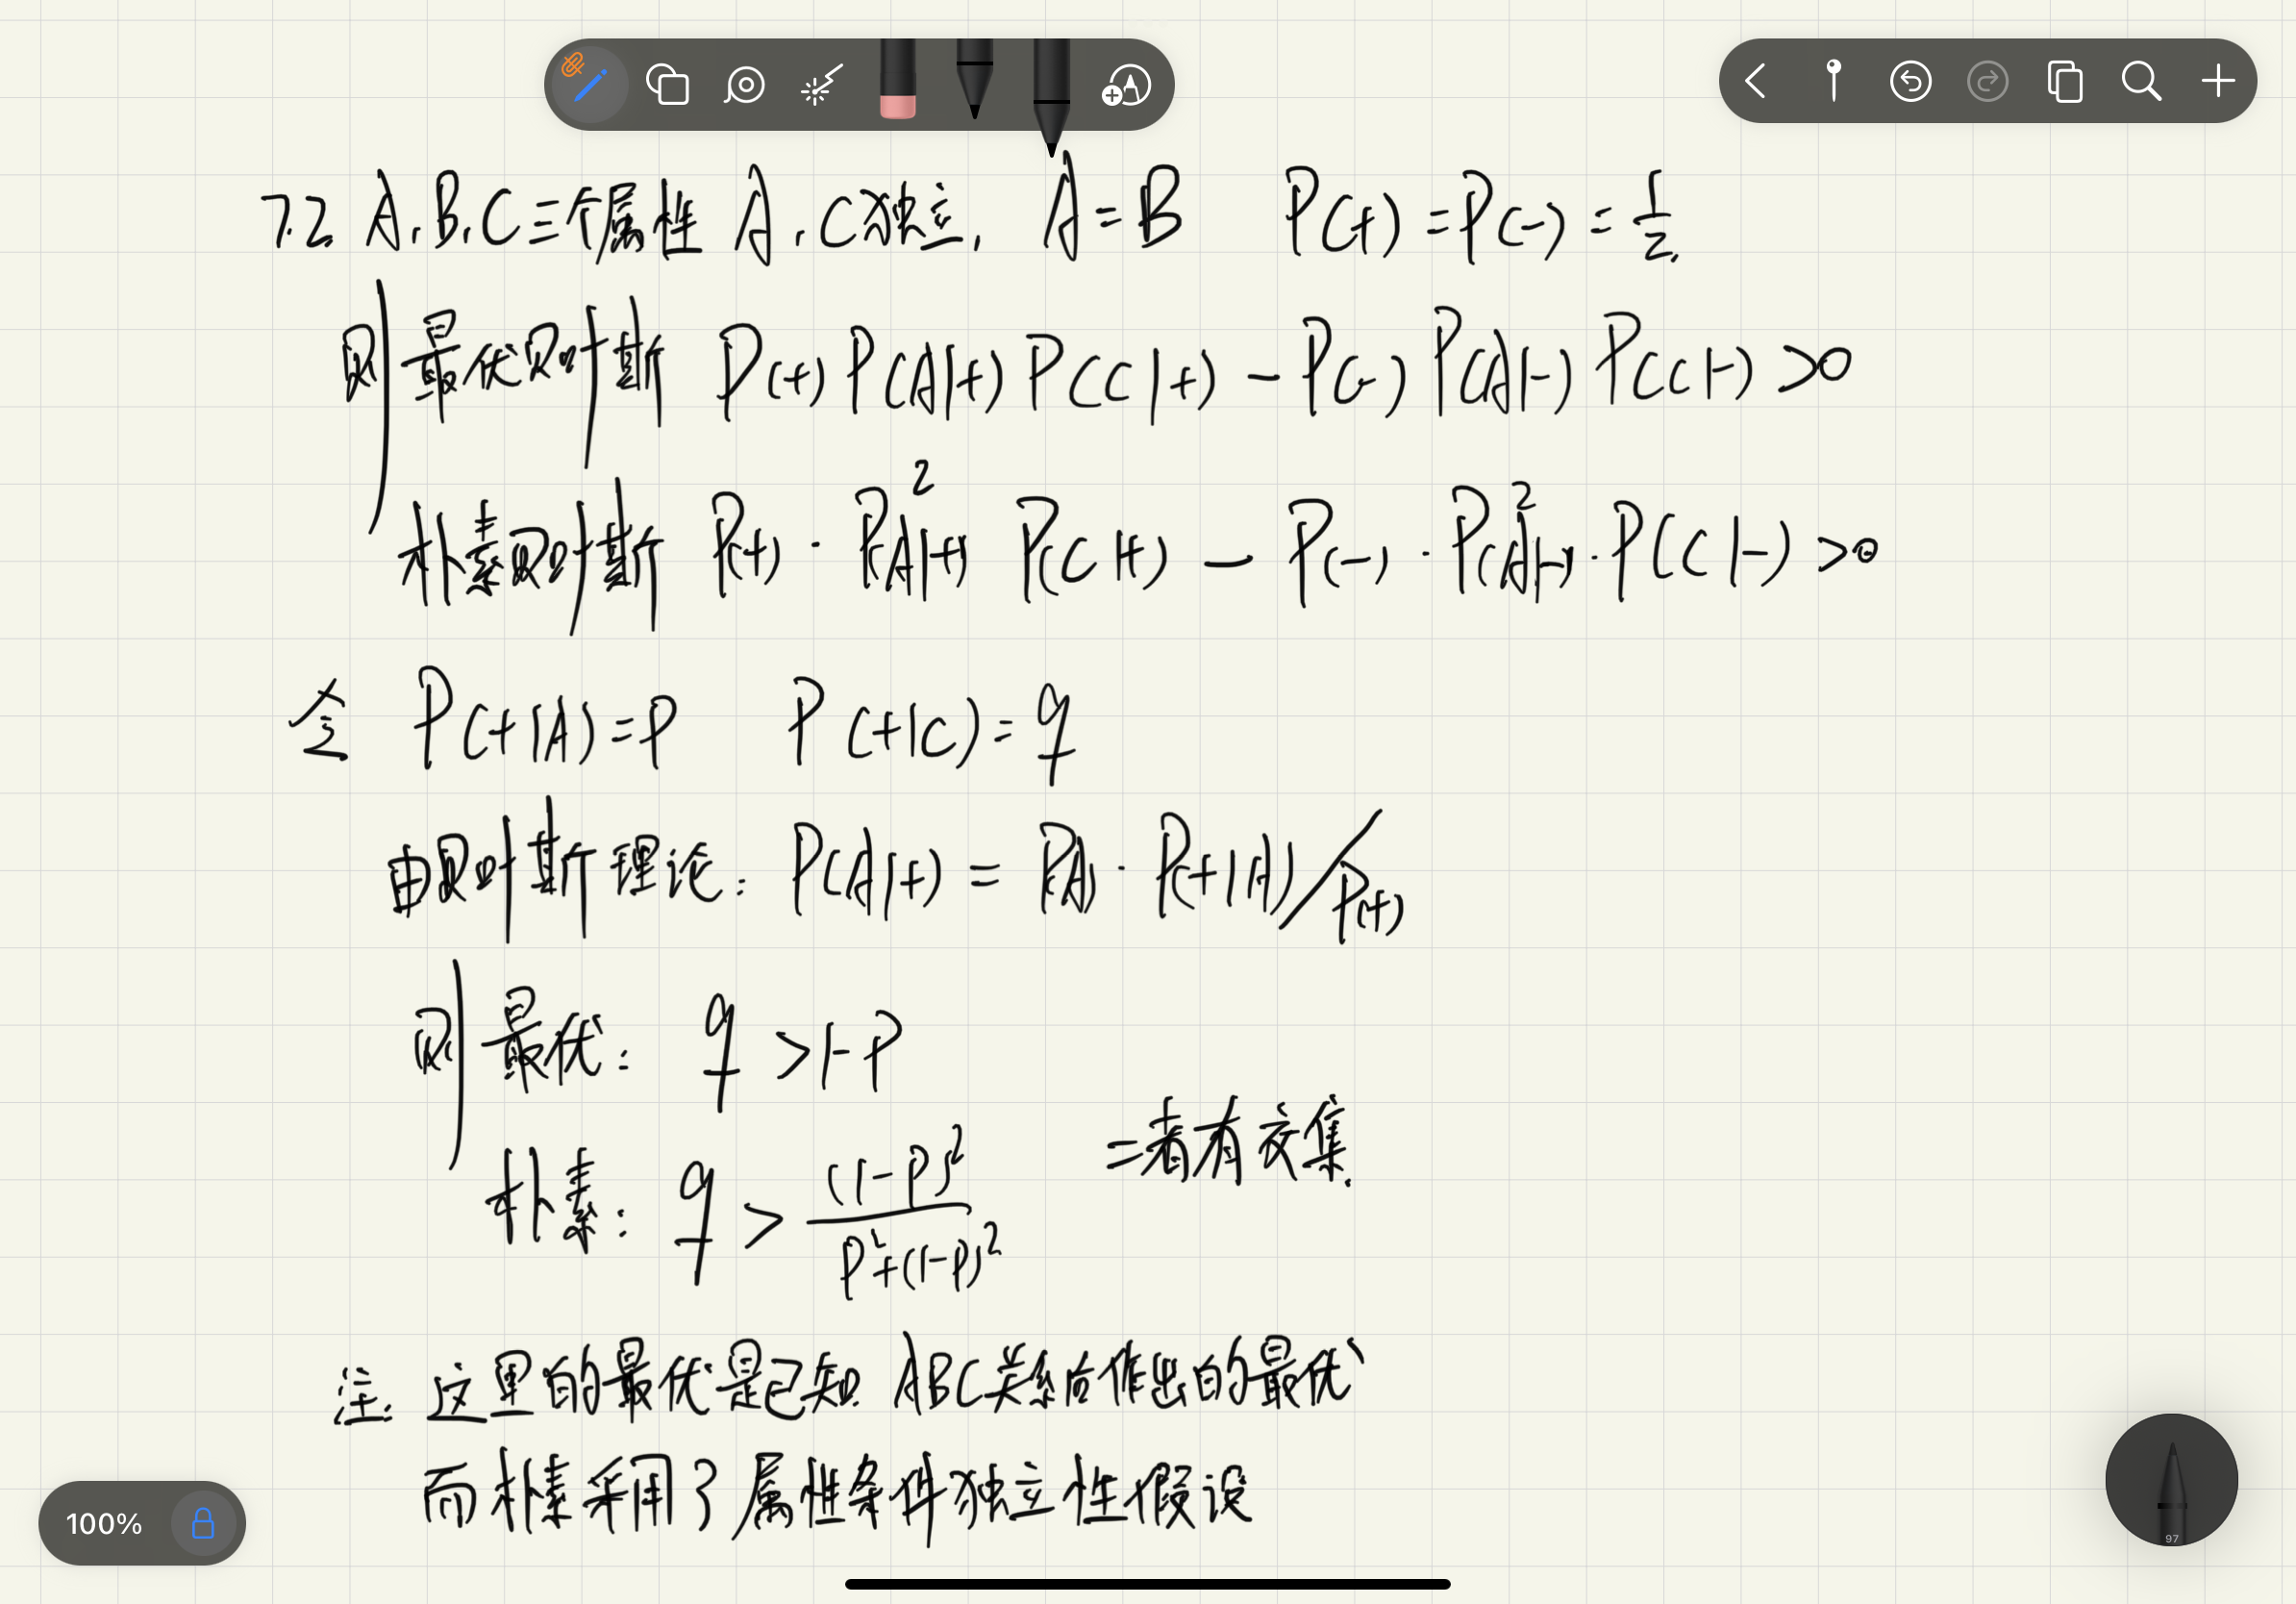 7.2 A.B.C三个属性 A.C独立. A=B P(+)=P(-)=1/2.
则 最优贝叶斯 P(+)P(A|+)P(C|+)-P(-)P(A|-)P(C|-)>0
朴素贝叶斯 P(+)·P(A|+)²P(C|+)-P(-)·P(A|-)²·P(C|-)>0
令 P(+|A)=P P(+|C)=q
由贝叶斯理论: P(A|+)=P(A)·P(+|A)/P(+)
则 最优: q>1-P
二者有交集.
朴素: q>(1-P)²/P²+(1-P)²
注: 这里的最优是已知ABC关系后作出的最优
而朴素采用了属性条件独立性假设
100%
97